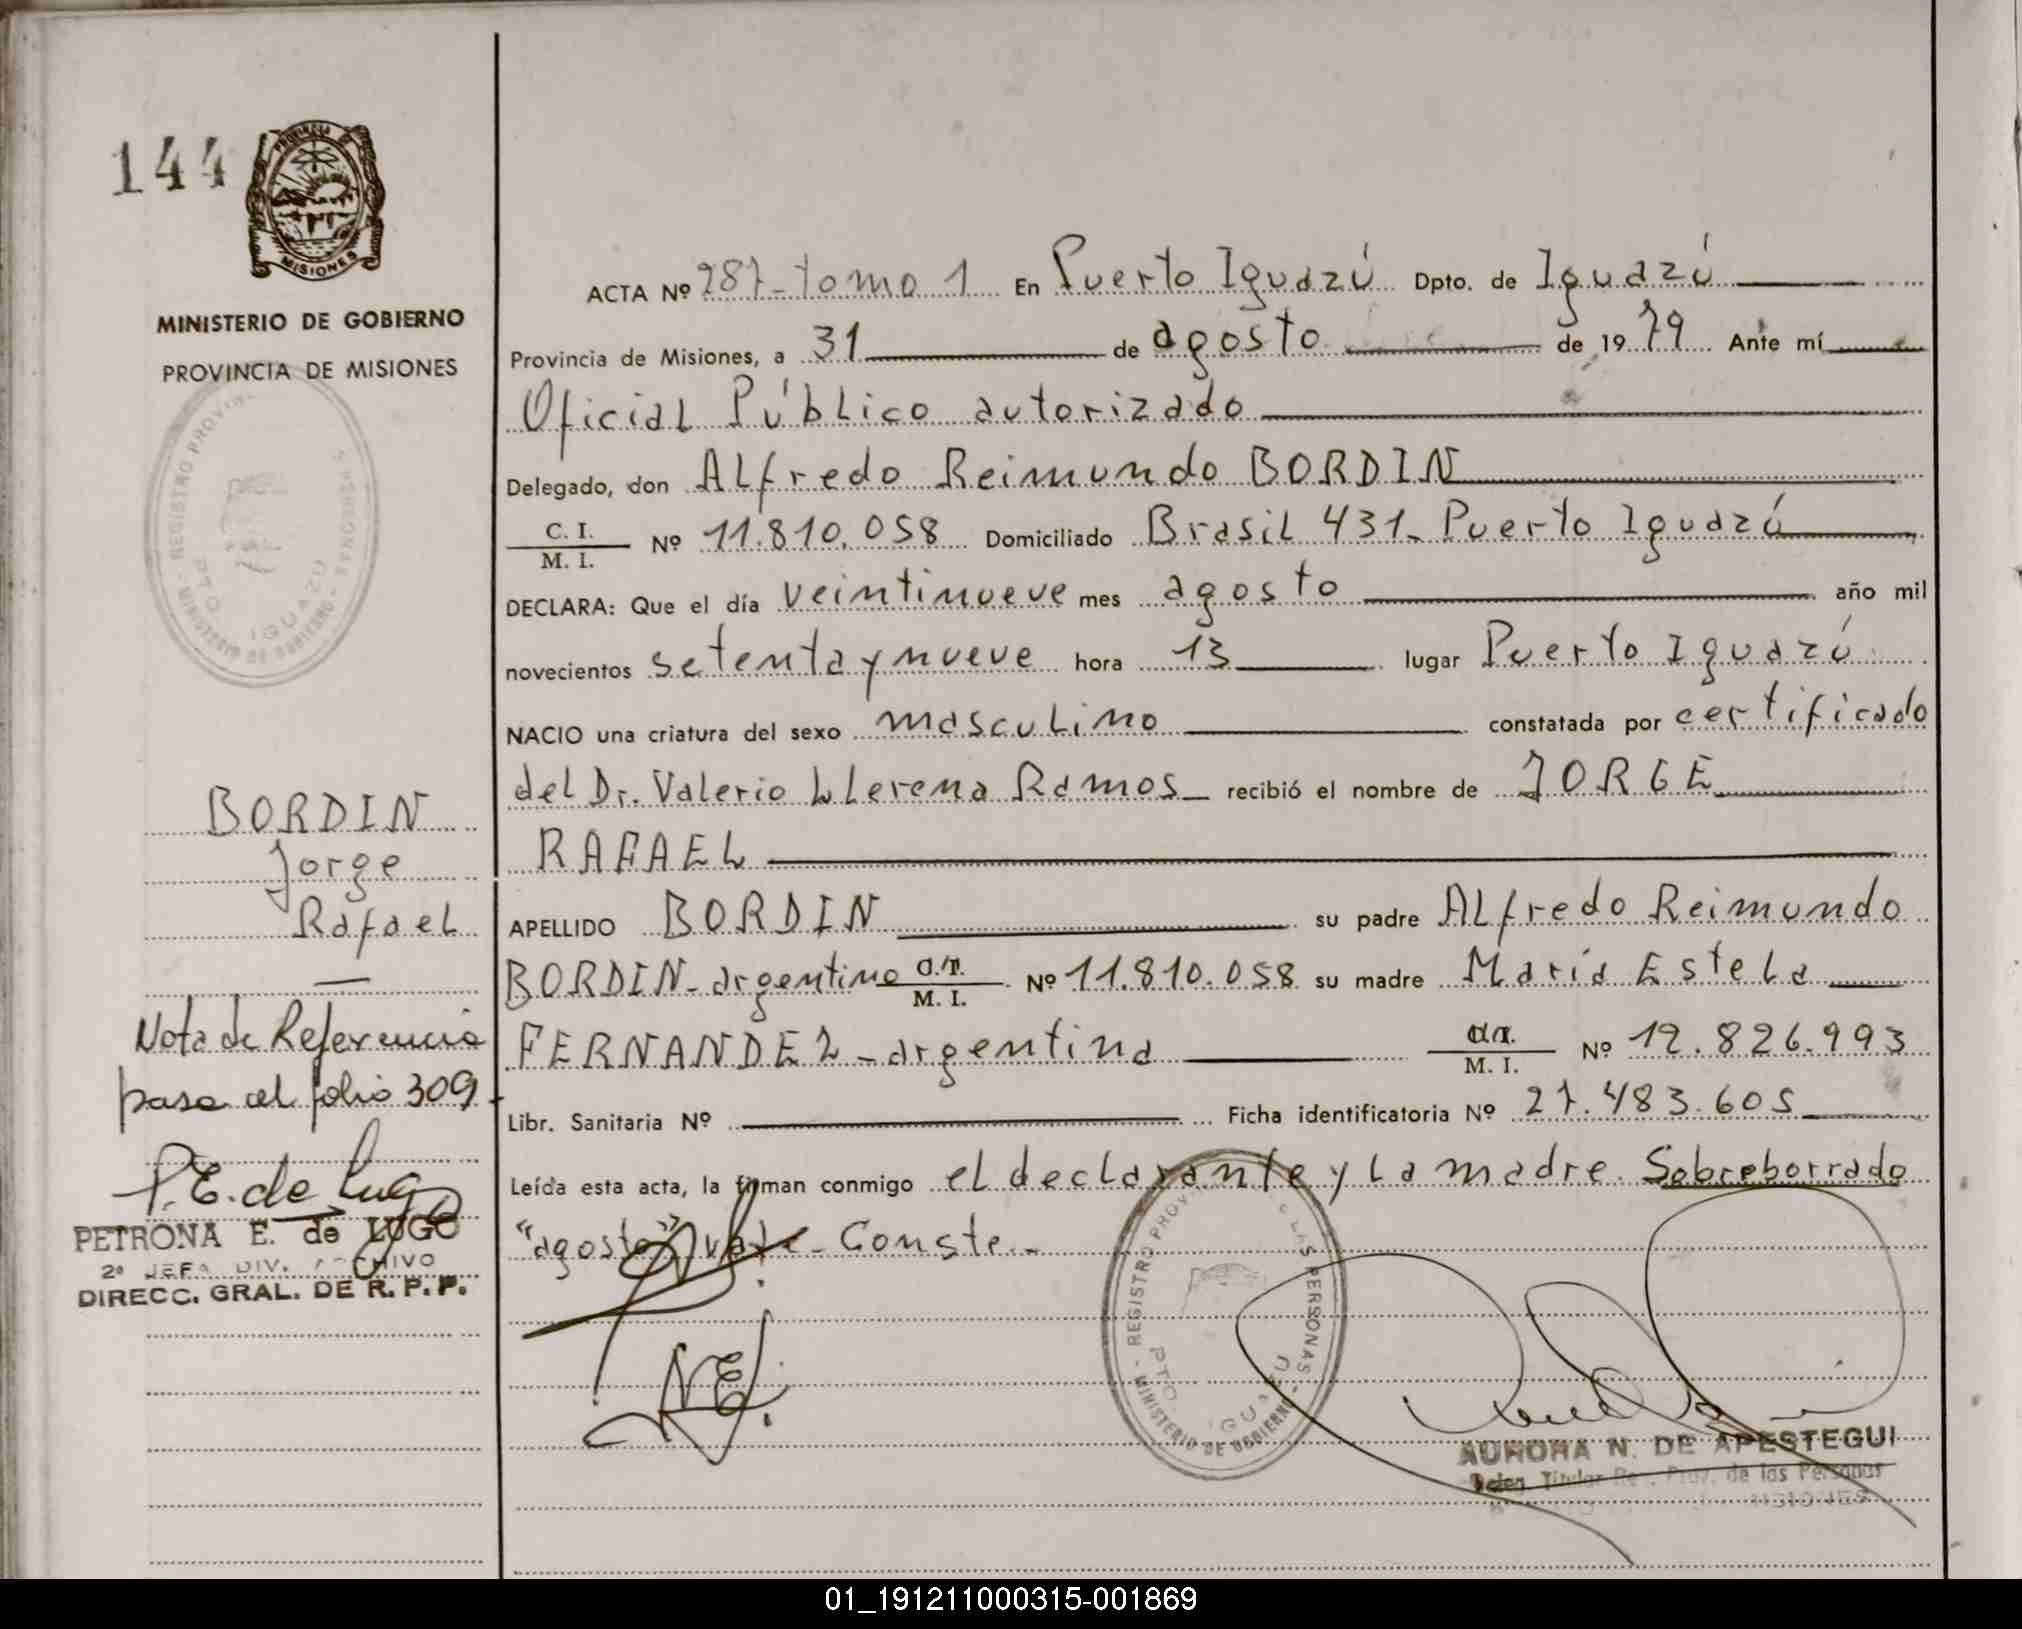 144
PROVINCIA
MISIONES
MINISTERIO DE GOBIERNO
PROVINCIA DE MISIONES
REGISTRO PROVIN
PERSONAS
MINISTERIO DE GOBIERNO
PTO. IGUAZU
BORDIN
Jorge
Rafael
Nota de Referencia
pasa al folio 309.
P.E. de Lugo
PETRONA E. de LUGO
2ª JEFA DIV. ARCHIVO
DIRECC. GRAL. DE R. P. P.
ACTA Nº 287-tomo 1 En Puerto Iguazú Dpto. de Iguazú
Provincia de Misiones, a 31 de agosto de 1979 Ante mí
Oficial Público autorizado
Delegado, don Alfredo Reimundo BORDIN
C. I.
M. I. Nº 11.810.058 Domiciliado Brasil 431- Puerto Iguazú
DECLARA: Que el día veintinueve mes agosto año mil
novecientos setenta y nueve hora 13 lugar Puerto Iguazú
NACIO una criatura del sexo masculino constatada por certificado
del Dr. Valerio LLerena Ramos recibió el nombre de JORGE
RAFAEL
APELLIDO BORDIN su padre Alfredo Reimundo
BORDIN-argentino C. I.
M. I. Nº 11.810.058 su madre María Estela
FERNANDEZ-argentina C. I.
M. I. Nº 12.826.993
Libr. Sanitaria Nº Ficha identificatoria Nº 27.483.605
Leída esta acta, la firman conmigo el declarante y la madre. Sobreborrado
"agosto" vale- Conste.-
REGISTRO PROV
LAS PERSONAS
MINISTERIO DE GOBIERNO
PTO. IGUAZU
AURORA N. DE APESTEGUI
Deleg. Titular Reg. Prov. de las Personas
MISIONES
01_191211000315-001869